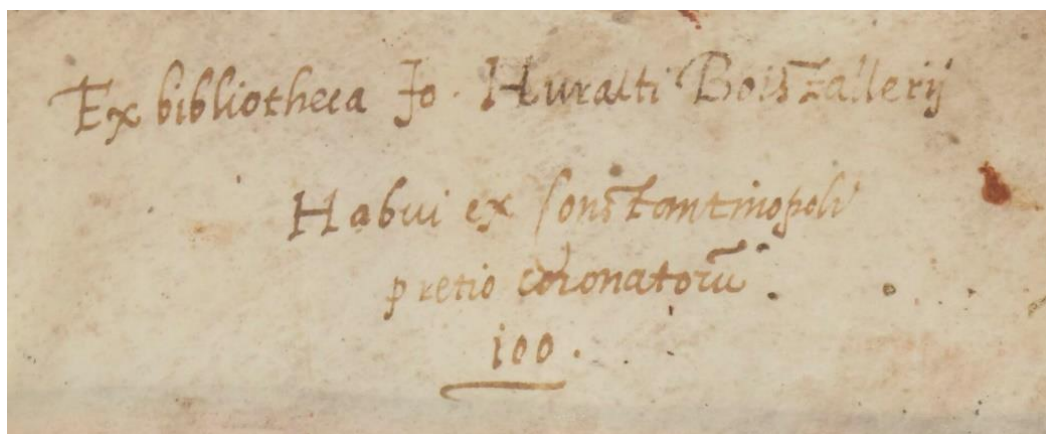 Ex bibliotheca Jo. Huralti Boistallerij
Habui ex Constantinopoli
pretio coronatorū.
100.